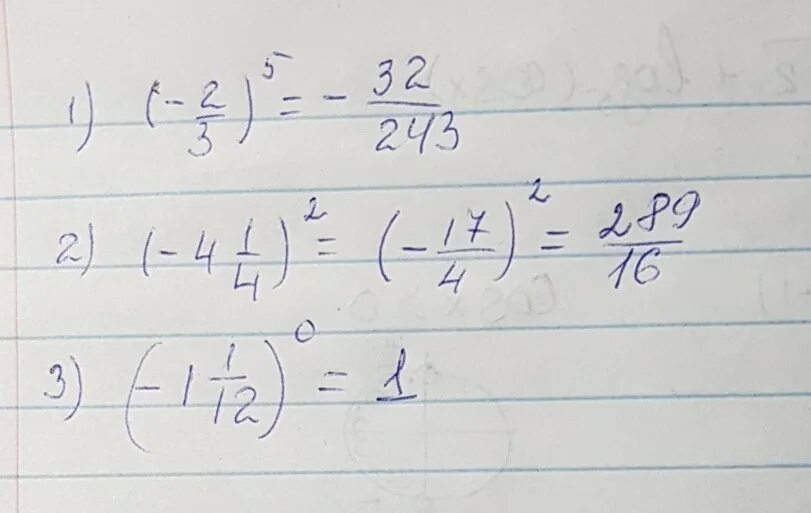 1) (-2/3)^5 = - 32/243
2) (-4 1/4)^2 = (-17/4)^2 = 289/16
3) (-1 1/12)^0 = 1